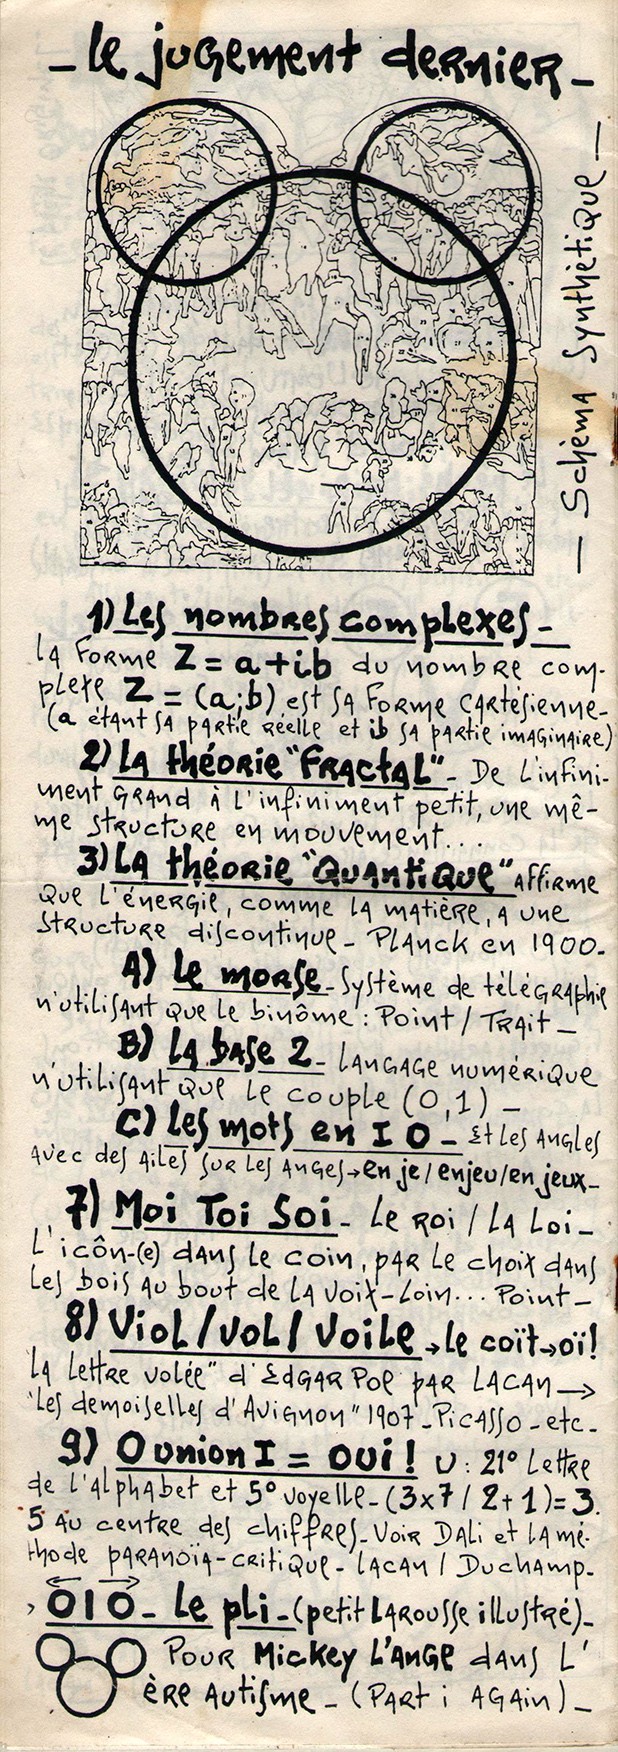 - le jugement dernier -
- Schéma Synthétique -
1) Les nombres complexes -
La forme Z = a + ib du nombre com-
plexe Z = (a;b) est sa forme cartésienne -
(a étant sa partie réelle et ib sa partie imaginaire)
2) La théorie "Fractal" - De l'infini-
ment grand à l'infiniment petit, une mê-
me structure en mouvement...
3) La théorie "Quantique" affirme
que l'énergie, comme la matière, a une
structure discontinue - Planck en 1900 -
A) Le morse - Système de télégraphie
n'utilisant que le binôme : Point / Trait -
B) La base 2 - Langage numérique
n'utilisant que le couple (0,1) -
C) Les mots en I O - Et les angles
avec des ailes sur les anges → en je / enjeu / en jeux -
7) Moi Toi Soi - Le roi / La loi -
L'icôn-(e) dans le coin, par le choix dans
les bois au bout de la voix - loin... Point -
8) Viol / vol / Voile → le coït → oï !
"La lettre volée" d'Edgar Poe par Lacan →
"Les demoiselles d'Avignon" 1907 - Picasso - etc -
9) O union I = oui ! U : 21° lettre
de l'alphabet et 5° voyelle - (3x7 / 2+1) = 3.
5 au centre des chiffres - Voir Dali et la mé-
thode paranoïa-critique - Lacan / Duchamp -
, OIO - Le pli - (petit Larousse illustré) -
Pour Mickey l'Ange dans l'
ère Autisme - (Part i Again) -